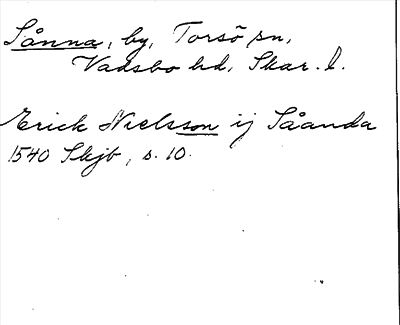 Sånna, by, Torsö sn,
Vadsbo hd, Skar. l.
Erick Nielsson ij Såanda
1540 Skjb, s. 10.